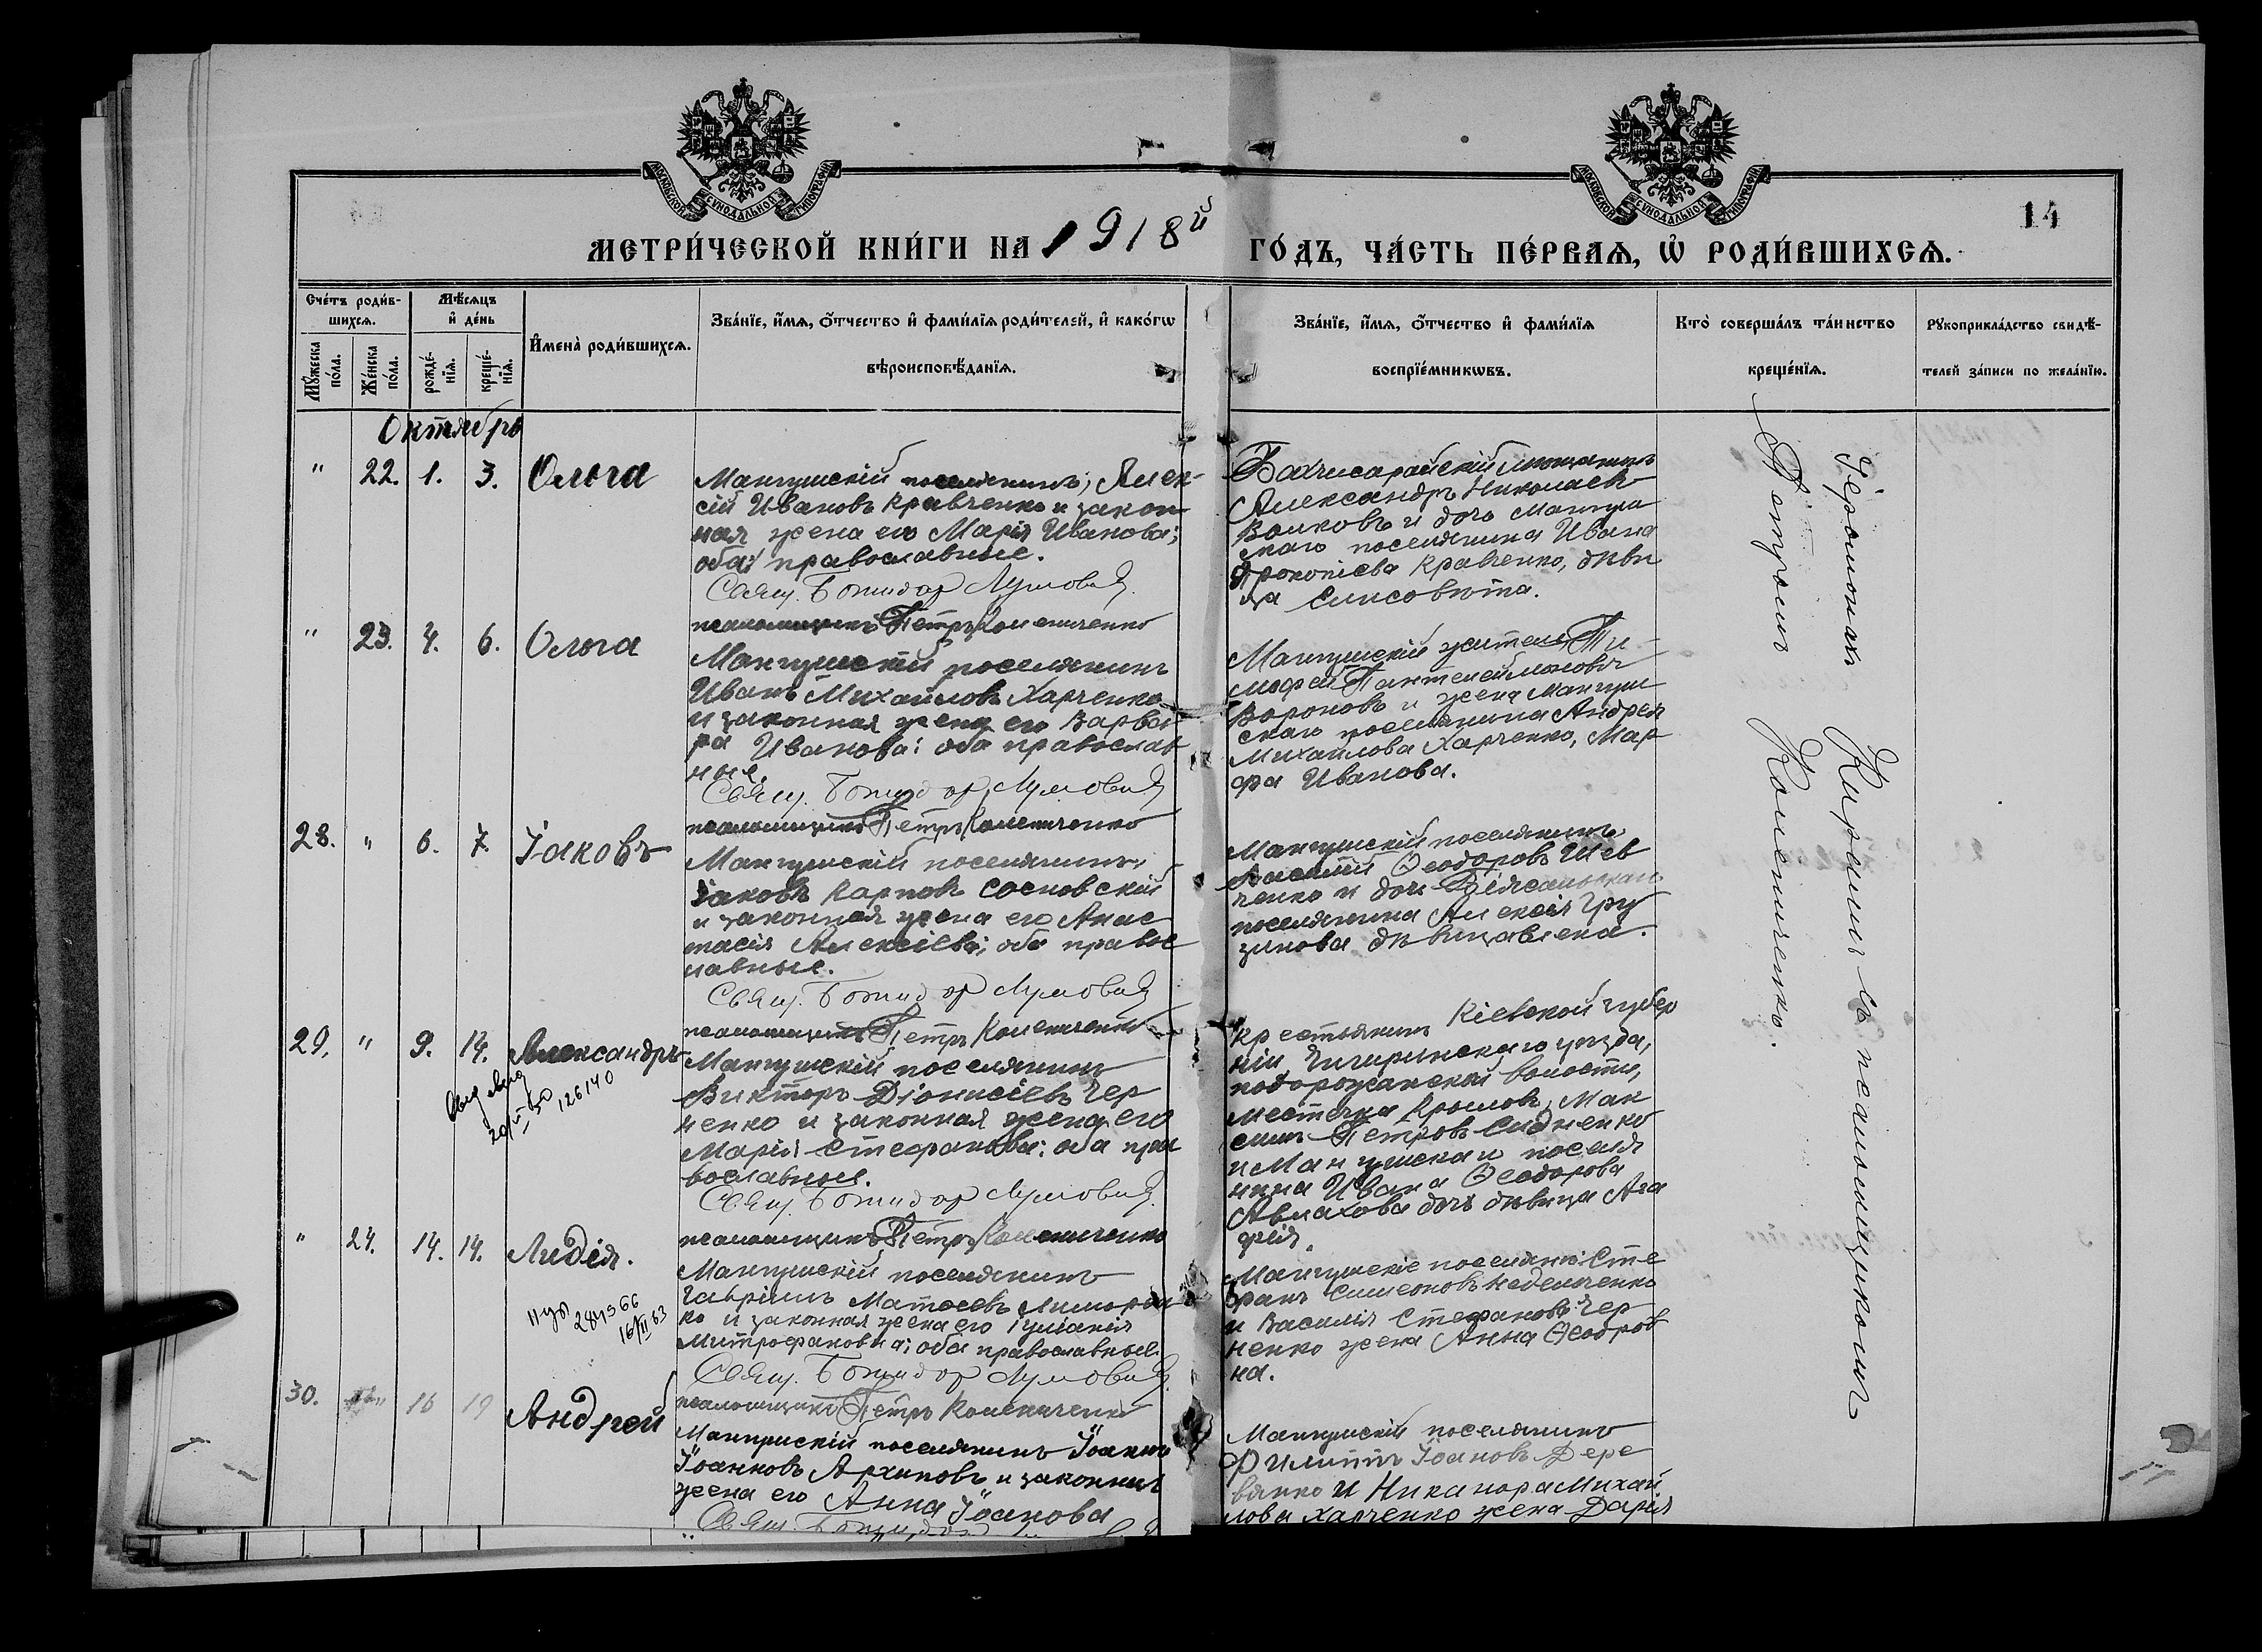 МОСКОВСКОЙ СУНОДАЛЬНОЙ ТИПОГРАФІИ
МОСКОВСКОЙ СУНОДАЛЬНОЙ ТИПОГРАФІИ
14
МЕТРИ́ЧЕСКОЙ КНИ́ГИ НА 1918й ГО́ДЪ, ЧА́СТЬ ПЕ́РВАЯ, Ѡ҆ РОДИ́ВШИХСЯ.
Сче́тъ роди́в-
шихся.
Мꙋ́жеска по́ла.
Же́нска по́ла.
Мѣ́сяцъ
и҆ де́нь
рожде́-
нїя.
креще́-
нїя.
И҆мена̀ роди́вшихся.
Зва́нїе, и҆́мя, ѻ҆́тчество и҆ фами́лїя роди́телей, и҆ како́гѡ
вѣроисповѣ́данїя.
Зва́нїе, и҆́мя, ѻ҆́тчество и҆ фами́лїя
воспрїе́мникѡвъ.
Кто̀ соверша́лъ та́инство
креще́нїя.
Рꙋкоприкла́дство свидѣ́-
телей за́писи по жела́нїю.
Октябрь
" 22. 1. 3. Ольга
Мангушскій поселянинъ, Алек-
сій Ивановъ Кравченко и закон-
ная жена его Марія Иванова;
оба православные.
Свящ. Божидар Лумовиħ
псаломщикъ Петръ Коменниченко
Бахчисарайскій мѣщанинъ
Александръ Николаевъ
Волковъ и дочь Мангуш
скаго поселянина Ивана
Прокопіева Кравченко, дѣви
ца Елисовѣта.
" 23. 4. 6. Ольга
Мангушскій поселянинъ
Иванъ Михайловъ Харченко
и законная жена его Варва-
ра Иванова; оба православ
ные.
Свящ. Божидар Лумовиħ
псаломщикъ Петръ Коменниченко
Мангушскій житель Ти-
мофей Пантелеймоновъ
Вороновъ и жена Мангуш
скаго поселянина Андрея
Михайлова Харченко, Мар
фа Иванова.
28. " 6. 7. Іаковъ
Мангушскій поселянинъ,
Іаковъ Карповъ Сосновскій
и законная жена его Анас
тасія Алексіева; оба правос
лавные.
Свящ. Божидар Лумовиħ
псаломщикъ Петръ Коменниченко
Мангушскій поселянинъ
Василій Ѳеодоровъ Шев
ченко и дочь
поселянина Алексія Гру
зинова дѣвица Елена.
29. " 9. 14. Александръ
20/V-50 126140
Мангушскій поселянинъ
Викторъ Діонисіевъ Чер
ненко и законная жена его
Марія Стефанова; оба пра
вославные.
Свящ. Божидар Лумовиħ
псаломщикъ Петръ Коменниченко
крестьянинъ Кіевской губер
ніи Чигиринскаго уѣзда,
подорожанской волости,
местечка Крылов, Мак
симъ Петровъ Сидненко
и Мангушскаго поселя
нина Ивана Ѳеодорова
Авлахова дочь дѣвица Ага
фія.
" 24. 14. 14. Лидія.
284966
16/III 63
Мангушскій поселянинъ
Гавріилъ Матѳеевъ Лимарен
ко и законная жена его Іуліанія
Митрофановна; оба православные.
Свящ. Божидар Лумовиħ
псаломщикъ Петръ Коменниченко
Мангушскіе поселяне: Сте
фанъ Симеоновъ Неделченко
и Василія Стефанова Чер
ненко жена Анна Ѳеодоров
на.
30. " 16 19 Андрей
Мангушскій поселянинъ Іоаннъ
Іоанновъ Архиповъ и законная
жена его Анна Іоанова
Свящ. Божидар
Мангушскій поселянинъ
Филиппъ Іоановъ Дере
вянко и Никанора Михай
лова Харченко жена Дарія
Іеромонахъ Кириллъ съ псаломщикомъ
Петромъ Коменниченко.